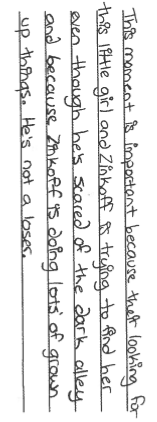 This moment is important because theft looking for
this little girl and Zinkoff is trying to find her
even though he's scared of the dark alley
and because Zinkoff is doing lots of grown
up things. He's not a loser.